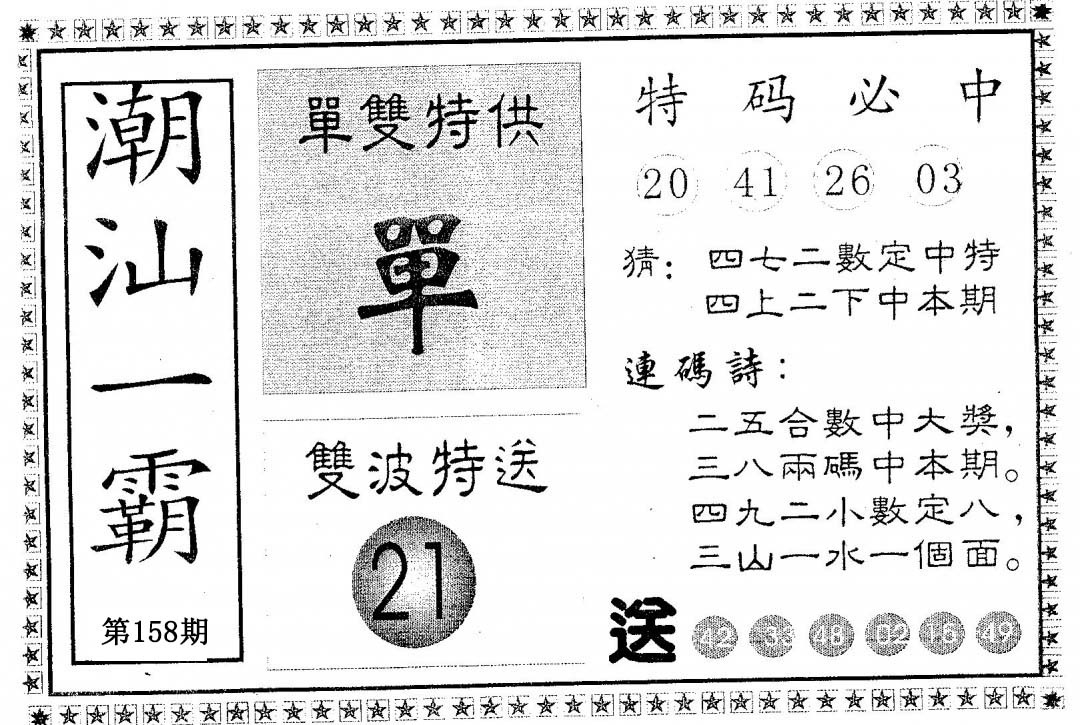 潮汕一霸
第158期
單雙特供
單
雙波特送
21
特码必中
20 41 26 03
猜：四七二數定中特
四上二下中本期
連碼詩：
二五合數中大獎，
三八兩碼中本期。
四九二小數定八，
三山一水一個面。
送 42 33 48 02 16 49